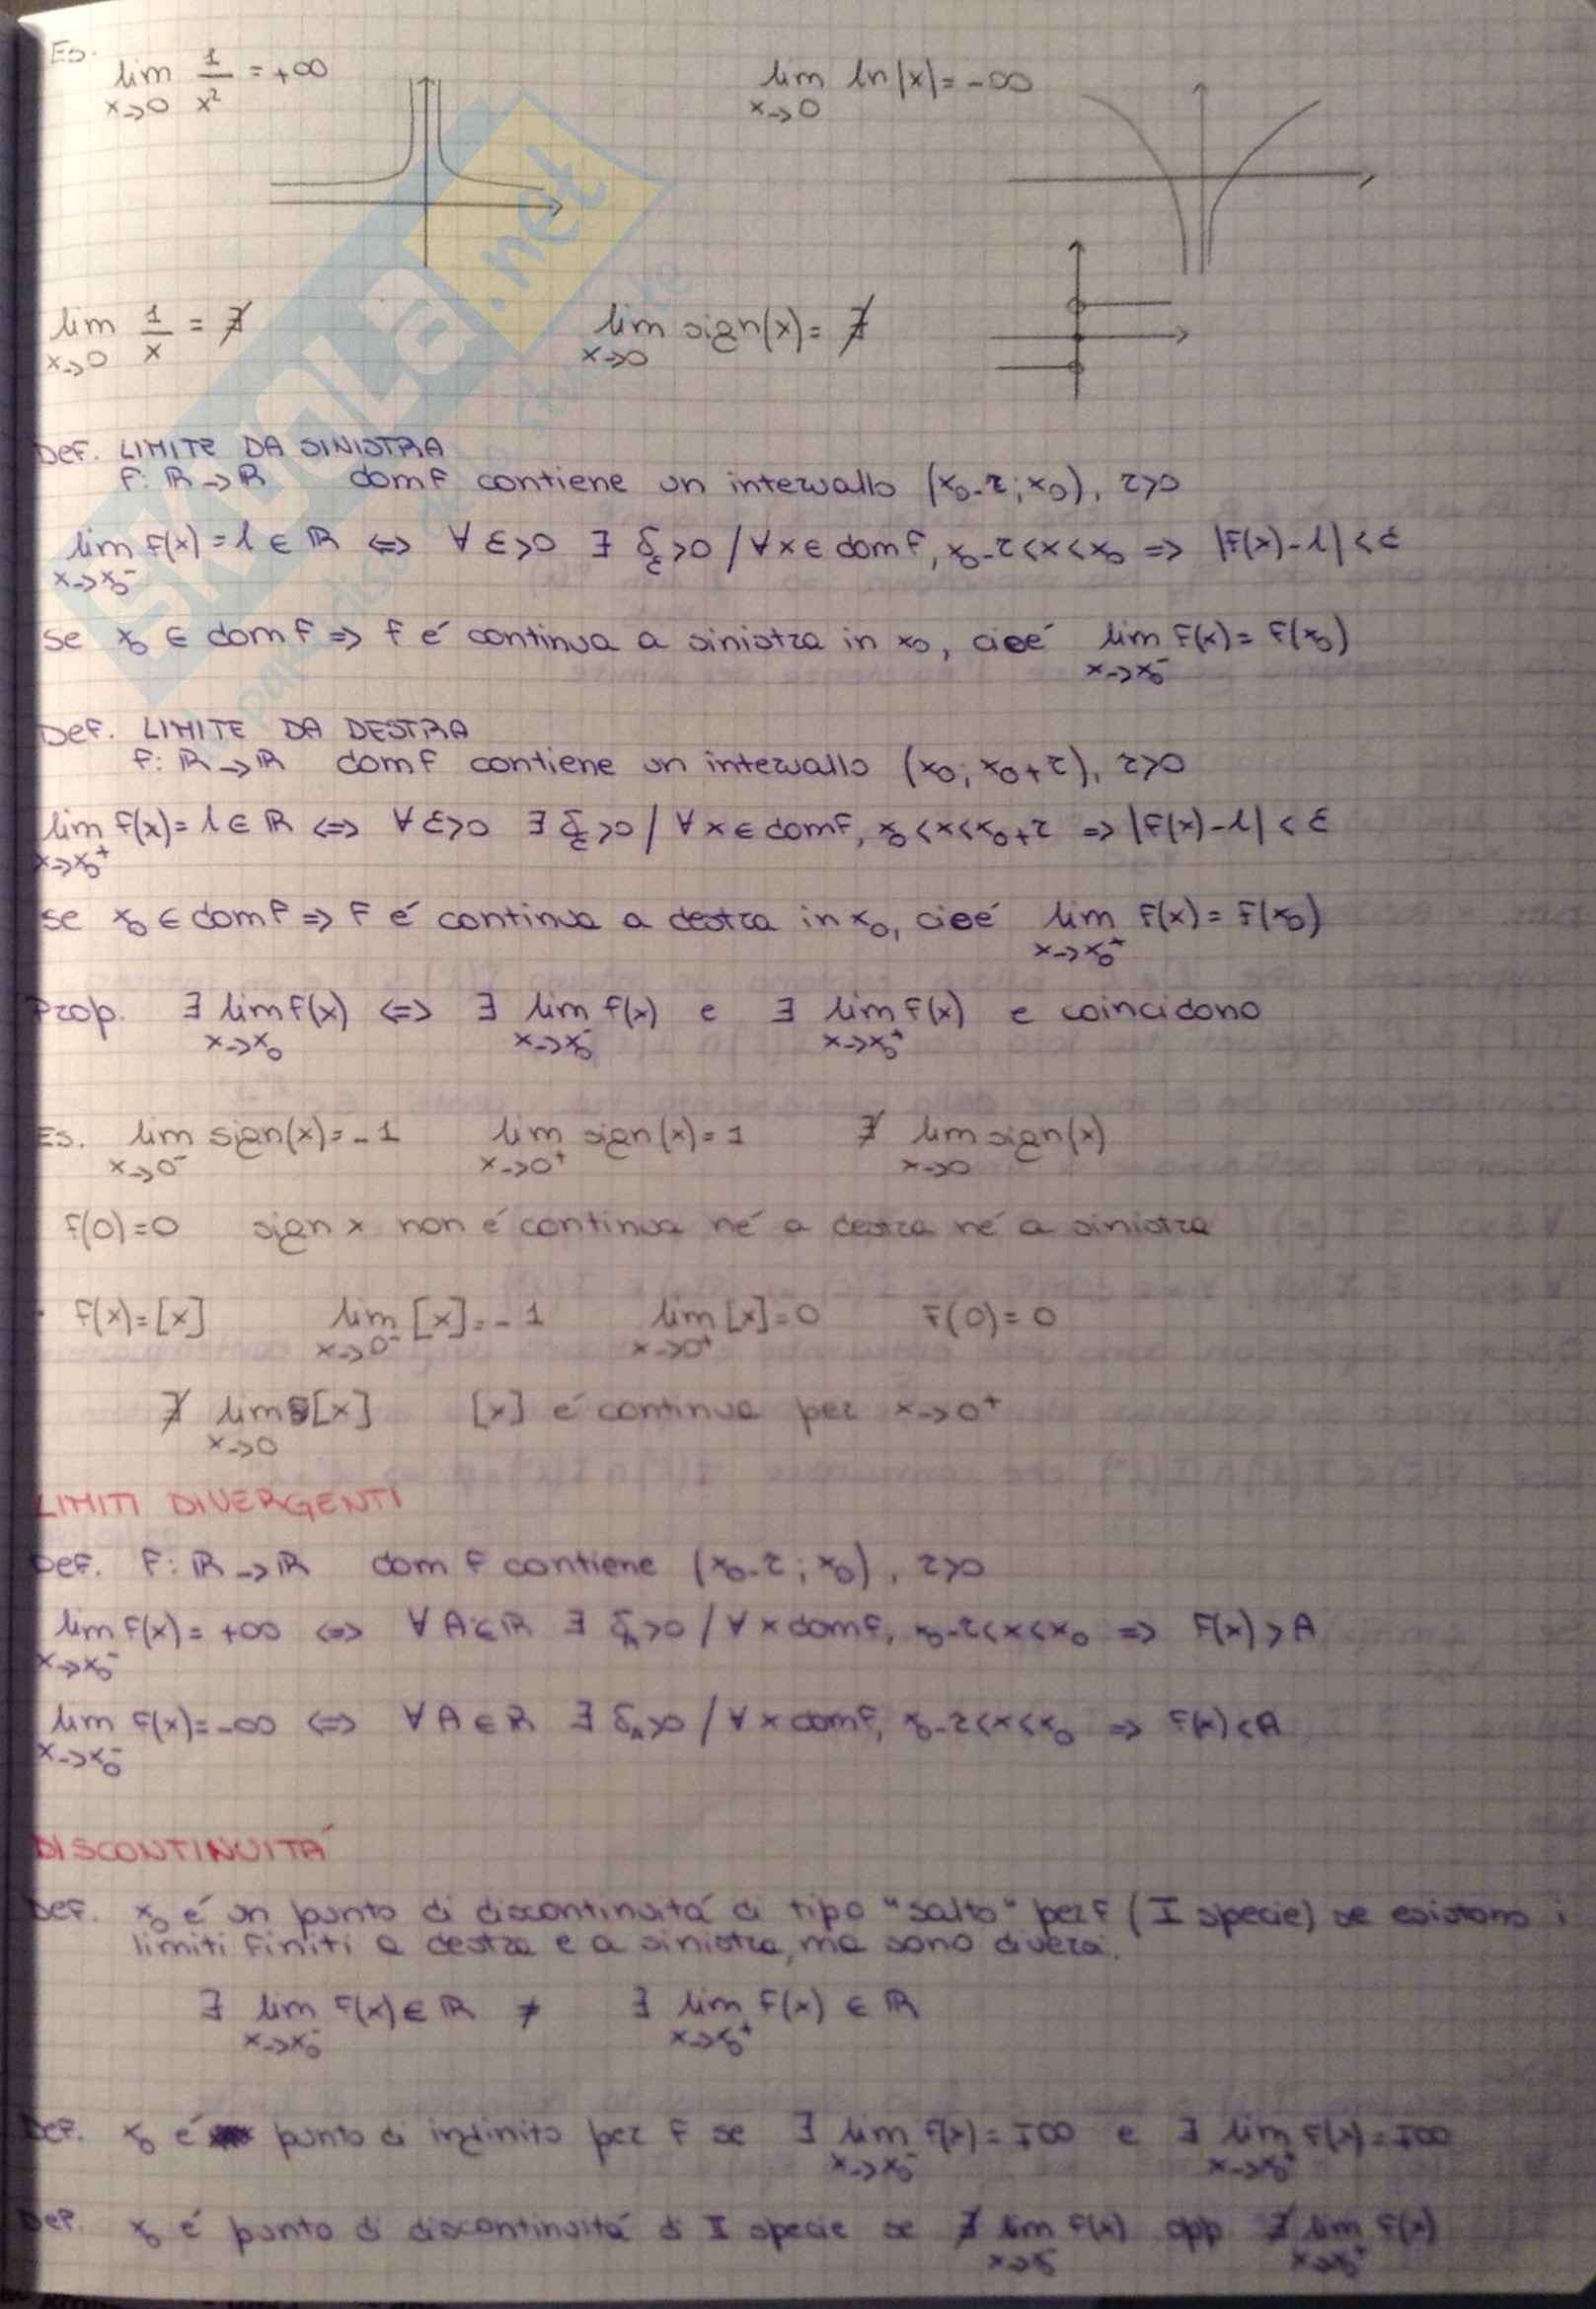 Es.
lim x→0 1/x² = +∞    lim x→0 ln|x| = -∞
lim x→0 1/x = ∄    lim x→0 sign(x) = ∄
SKUOLA.net
Def. LIMITE DA SINISTRA
f: ℝ→ℝ domf contiene un intervallo (x₀-r; x₀), r>0
lim x→x₀⁻ f(x) = l ∈ ℝ ⇔ ∀ε>0 ∃ δ_ε>0 / ∀x∈domf, x₀-r<x<x₀ ⇒ |f(x)-l|<ε
se x₀ ∈ domf ⇒ f é continua a sinistra in x₀, cioé lim x→x₀⁻ f(x) = f(x₀)
Def. LIMITE DA DESTRA
f: ℝ→ℝ domf contiene un intervallo (x₀; x₀+r), r>0
lim x→x₀⁺ f(x) = l ∈ ℝ ⇔ ∀ε>0 ∃ δ_ε>0 / ∀x∈domf, x₀<x<x₀+r ⇒ |f(x)-l|<ε
se x₀ ∈ domf ⇒ f é continua a destra in x₀, cioé lim x→x₀⁺ f(x) = f(x₀)
Prop. ∃ lim x→x₀ f(x) ⇔ ∃ lim x→x₀⁻ f(x) e ∃ lim x→x₀⁺ f(x) e coincidono
Es. lim x→0⁻ sign(x) = -1    lim x→0⁺ sign(x) = 1    ∄ lim x→0 sign(x)
f(0)=0 sign x non é continua né a destra né a sinistra
· f(x)=[x]    lim x→0⁻ [x] = -1    lim x→0⁺ [x] = 0    f(0)=0
∄ lim x→0 [x]    [x] é continua per x→0⁺
LIMITI DIVERGENTI
Def. f: ℝ→ℝ dom f contiene (x₀-r; x₀), r>0
lim x→x₀⁻ f(x) = +∞ ⇔ ∀A∈ℝ ∃ δ_A>0 / ∀x domf, x₀-r<x<x₀ ⇒ f(x)>A
lim x→x₀⁻ f(x) = -∞ ⇔ ∀A∈ℝ ∃ δ_A>0 / ∀x domf, x₀-r<x<x₀ ⇒ f(x)<A
DISCONTINUITÁ
Def. x₀ é un punto di discontinuitá di tipo "salto" per f (I specie) se esistono i
limiti finiti a destra e a sinistra, ma sono diversi.
∃ lim x→x₀⁻ f(x) ∈ ℝ ≠ ∃ lim x→x₀⁺ f(x) ∈ ℝ
Def. x₀ é punto di infinito per f se ∃ lim x→x₀⁻ f(x) = ±∞ e ∃ lim x→x₀⁺ f(x) = ±∞
Def. x₀ é punto di discontinuitá di I specie se ∄ lim x→x₀⁻ f(x) opp. ∄ lim x→x₀⁺ f(x)